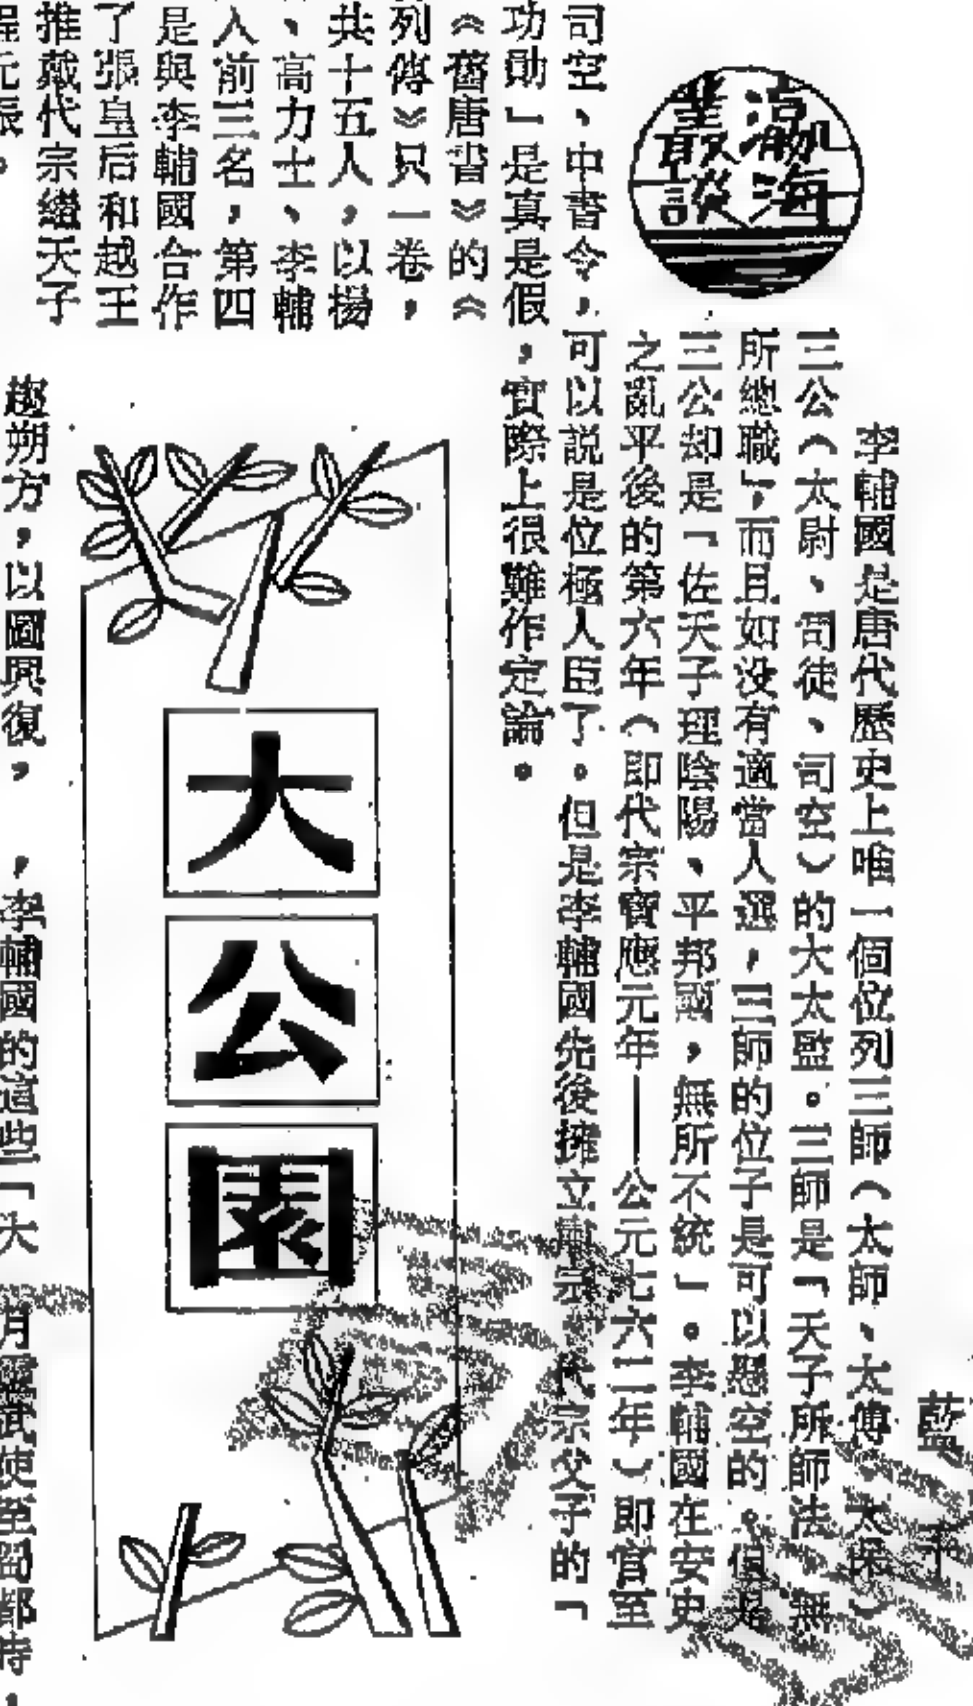 瀛海
叢談
藍予
李輔國是唐代歷史上唯一個位列三師（太師、太傅、太保）
三公（太尉、司徒、司空）的大太監。三師是「天子所師法，無
所總職」，而且如没有適當人選，三師的位子是可以懸空的。但是
三公却是「佐天子理陰陽、平邦國，無所不統」。李輔國在安史
之亂平後的第六年（即代宗寶應元年——公元七六二年）即官至
司空、中書令，可以説是位極人臣了。但是李輔國先後擁立肅宗、代宗父子的「
功勛」是真是假，實際上很難作定論。
《舊唐書》的《
列傳》只一卷，
共十五人，以楊
、高力士、李輔
入前三名，第四
是與李輔國合作
了張皇后和越王
推戴代宗繼天子
程元振。
大公園
趨朔方，以圖興復，
，李輔國的這些「大
月靈武使至蜀都時，